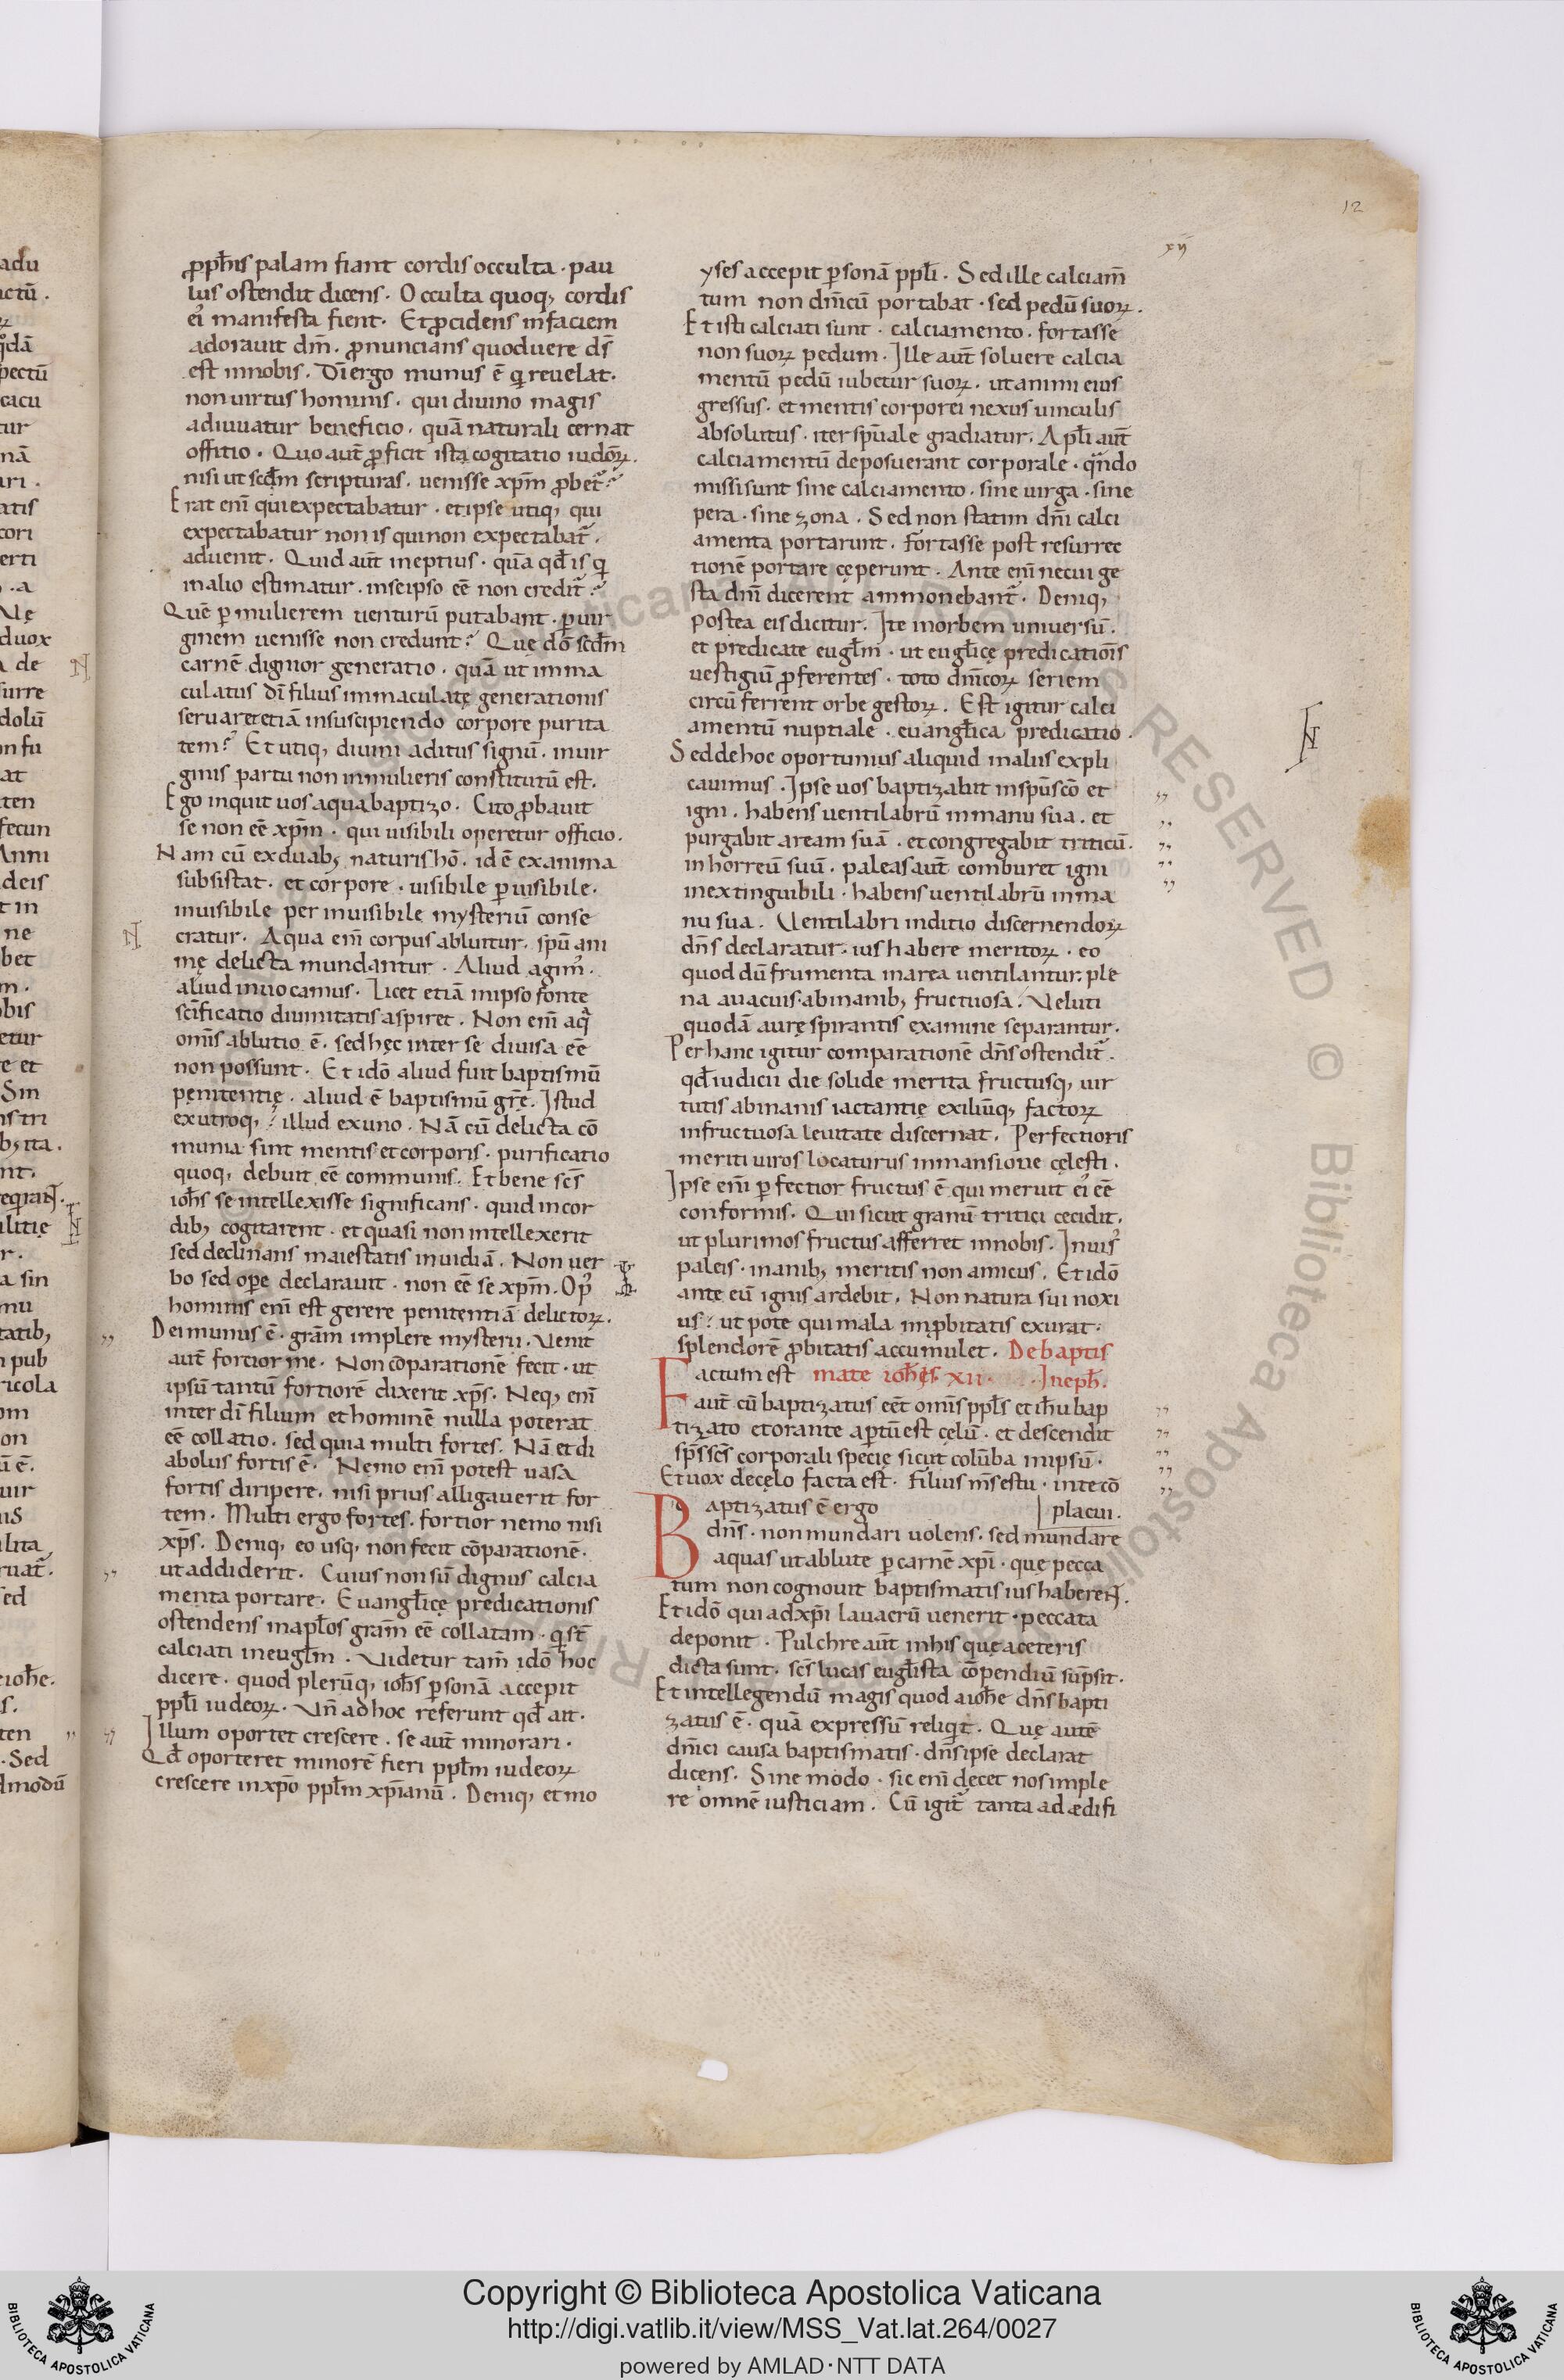 12
xii
ꝓph̄is palam fiant cordis occulta · pau
lus ostendit dicens · Occulta quoq; cordis
ei᾿ manifesta fient · Et ꝓcidens in faciem
adorauit dm̄ · ꝓnuncians quod uere ds̄
est in nobis · Dī ergo munus ē q̇ reuelat ·
non uirtus hominis · qui diuino magis
adiuuatur beneficio · quā naturali cernat
offitio · Quo aut̄ ꝓficit ista cogitatio iudōꝝ ·
nisi ut scd̄m scripturas · uenisse xp̄m ꝓbet᷑ ?
Erat enī qui expectabatur · et ipse utiq; qui
expectabatur non is qui non expectabat᷑ ·
aduenit · Quid aut̄ ineptius · quā qd̄ is q̇
in alio estimatur · in se ipso eē non credit᷑ ?
Quē ꝑ mulierem uenturū putabant · ꝑ uir
ginem uenisse non credunt ? Quę dō scd̄m
carnē dignior generatio · quā ut imma
culatus dī filius immaculatę generationis
seruaret etiā in suscipiendo corpore purita
tem ? Et utiq; diuini aditus signū · in uir
ginis partu non in mulieris constitutū est ·
Ego inquit uos aqua baptizo · Cito ꝓbauit
se non eē xp̄m · qui uisibili operetur officio ·
Nam cū ex duab; naturis hō · id ē ex anima
subsistat · et corpore · uisibile ꝑ uisibile ·
inuisibile per inuisibile mysteriū conse
cratur · Aqua enī corpus abluitur · spū ani
mę delicta mundantur · Aliud agim᾿ ·
aliud inuocamus · Licet etiā in ipso fonte
scīficatio diuinitatis aspiret · Non enī aq̄
omīs ablutio ē · sed hęc inter se diuisa eē
non possunt · Et idō aliud fuit baptismū
pęnitentię · aliud ē baptismū gr̄ę · Istud
ex utroq; ? illud ex uno · Nā cū delicta cō
munia sint mentis et corporis · purificatio
quoq; debuit eē communis · Et bene scs̄
ioh̄s se intellexisse significans · quid in cor
dib; cogitarent · et quasi non intellexerit
sed declinans maiestatis inuidiā · Non uer
bo sed oꝑe declarauit · non eē se xp̄m · Op᾿
hominis enī est gerere penitentiā delictoꝝ ·
Dei munus ē · grām implere mysterii · Venit
aut̄ fortior me · Non cōparationē fecit · ut
ipsū tantū fortiorē dixerit xp̄s · Neq; enī
inter dī filium et hominē nulla poterat
eē collatio · sed quia multi fortes · Nā et di
abolus fortis ē · Nemo enī potest uasa
fortis diripere · nisi prius alligauerit for
tem · Multi ergo fortes · fortior nemo nisi
xp̄s · Deniq; eo usq; non fecit cōparationē ·
ut addiderit · Cuius non sū dignus calcia
menta portare · Euangl̄icę predicationis
ostendens in apl̄os grām eē collatam · q̇ st̄
calciati in eugl̄m · Videtur tam̄ idō hoc
dicere · quod plerūq; ioh̄s ꝑsonā accepit
ppl̄i iudeoꝝ · Vn̄ ad hoc referunt qd̄ ait ·
Illum oportet crescere · se aut̄ minorari ·
Qd̄ oporteret minorē fieri ppl̄m iudeoꝝ
crescere in xp̄o ppl̄m xp̄ianū · Deniq; et mo
yses accepit ꝑsonā ppl̄i · Sed ille calciam̄
tum non dn̄icū portabat · sed pedū suoꝝ ·
Et isti calciati sunt · calciamento · fortasse
non suoꝝ pedum · Ille aut̄ soluere calcia
mentū pedū iubetur suoꝝ · ut animi eius
gressus · et mentis corporei nexus uinculis
absolutus · iter spūale gradiatur · Apl̄i aut̄
calciamentū deposuerant corporale · qn̄do
missi sunt sine calciamento · sine uirga · sine
pera · sine zona · Sed non statim dn̄i calci
amenta portarunt · fortasse post resurrec
tionē portare cęperunt · Ante enī ne cui ge
sta dn̄i dicerent ammonebant᷑ · Deniq;
postea eis dicitur · Ite in orbem uniuersū ·
et predicate eugl̄m · ut eugl̄icę predicatiōis
uestigiū ꝓferentes · toto dn̄icoꝝ seriem
circūferrent orbe gestoꝝ · Est igitur calci
amentū nuptiale · euangl̄ica predicatio ·
Sed de hoc oportunius aliquid in alus expli
cauimus · Ipse uos baptizabit in spū scō et
igni · habens uentilabrū in manu sua · et
purgabit aream suā · et congregabit triticū ·
in horreū suū · paleas aut̄ comburet igni
inextinguibili · habens uentilabrū in ma
nu sua · Ventilabri inditio discernendoꝝ
dn̄s declaratur · ius habere meritoꝝ · eo
quod dū frumenta in area uentilantur · ple
na a uacuis · ab inanib; fructuosa · Veluti
quodā aurę spirantis examine separantur ·
Per hanc igitur comparationē dn̄s ostendit᷑ ·
qd̄ iudicii die solide merita fructusq; uir
tutis ab inanis iactantię exiliūq; factoꝝ
infructuosa leuitate discernat · Perfectioris
meriti uiros locaturus in mansione cęlesti ·
Ipse enī ꝑfectior fructus ē qui meruit ei᾿ eē
conformis · Qui sicut granū tritici cecidit ·
ut plurimos fructus afferret in nobis · Inuis᾿
paleis · inanib; meritis non amicus · Et idō
ante eū ignis ardebit · Non natura sui noxi
us ? ut pote qui mala imꝓbitatis exurat ·
splendorē ꝓbitatis accumulet · De baptis
Factum est mate ioh̄is · xii · In eph̄ ·
aut̄ cū baptizatus eēt omīs ppl̄s et ih̄u bap
tizato et orante aꝑtū est cęlū · et descendit
sp̄s scs̄ corporali specię sicut colūba in ipsū ·
Et uox de cęlo facta est · Filius m̄s es tu · in te cō
placui ·
Baptizatus ē ergo
dn̄s · non mundari uolens · sed mundare
aquas ut ablute ꝑ carnē xp̄i · que pecca
tum non cognouit baptismatis ius haberent ·
Et idō qui ad xp̄i lauacrū uenerit · peccata
deponit · Pulchre aut̄ in his quę a ceteris
dicta sunt · scs̄ lucas eugl̄ista cōpendiū sūpsit ·
Et intellegendū magis quod a ioh̄e dn̄s bapti
zatus ē · quā expressū reliq̇t · Quę autē
dn̄ici causa baptismatis · dn̄s ipse declarat
dicens · Sine modo · sic enī dęcet nos imple
re omnē iusticiam · Cū igit᷑ tanta ad ædifi
Copyright © Biblioteca Apostolica Vaticana
http://digi.vatlib.it/view/MSS_Vat.lat.264/0027
powered by AMLAD·NTT DATA
BIBLIOTECA APOSTOLICA VATICANA
BIBLIOTECA APOSTOLICA VATICANA